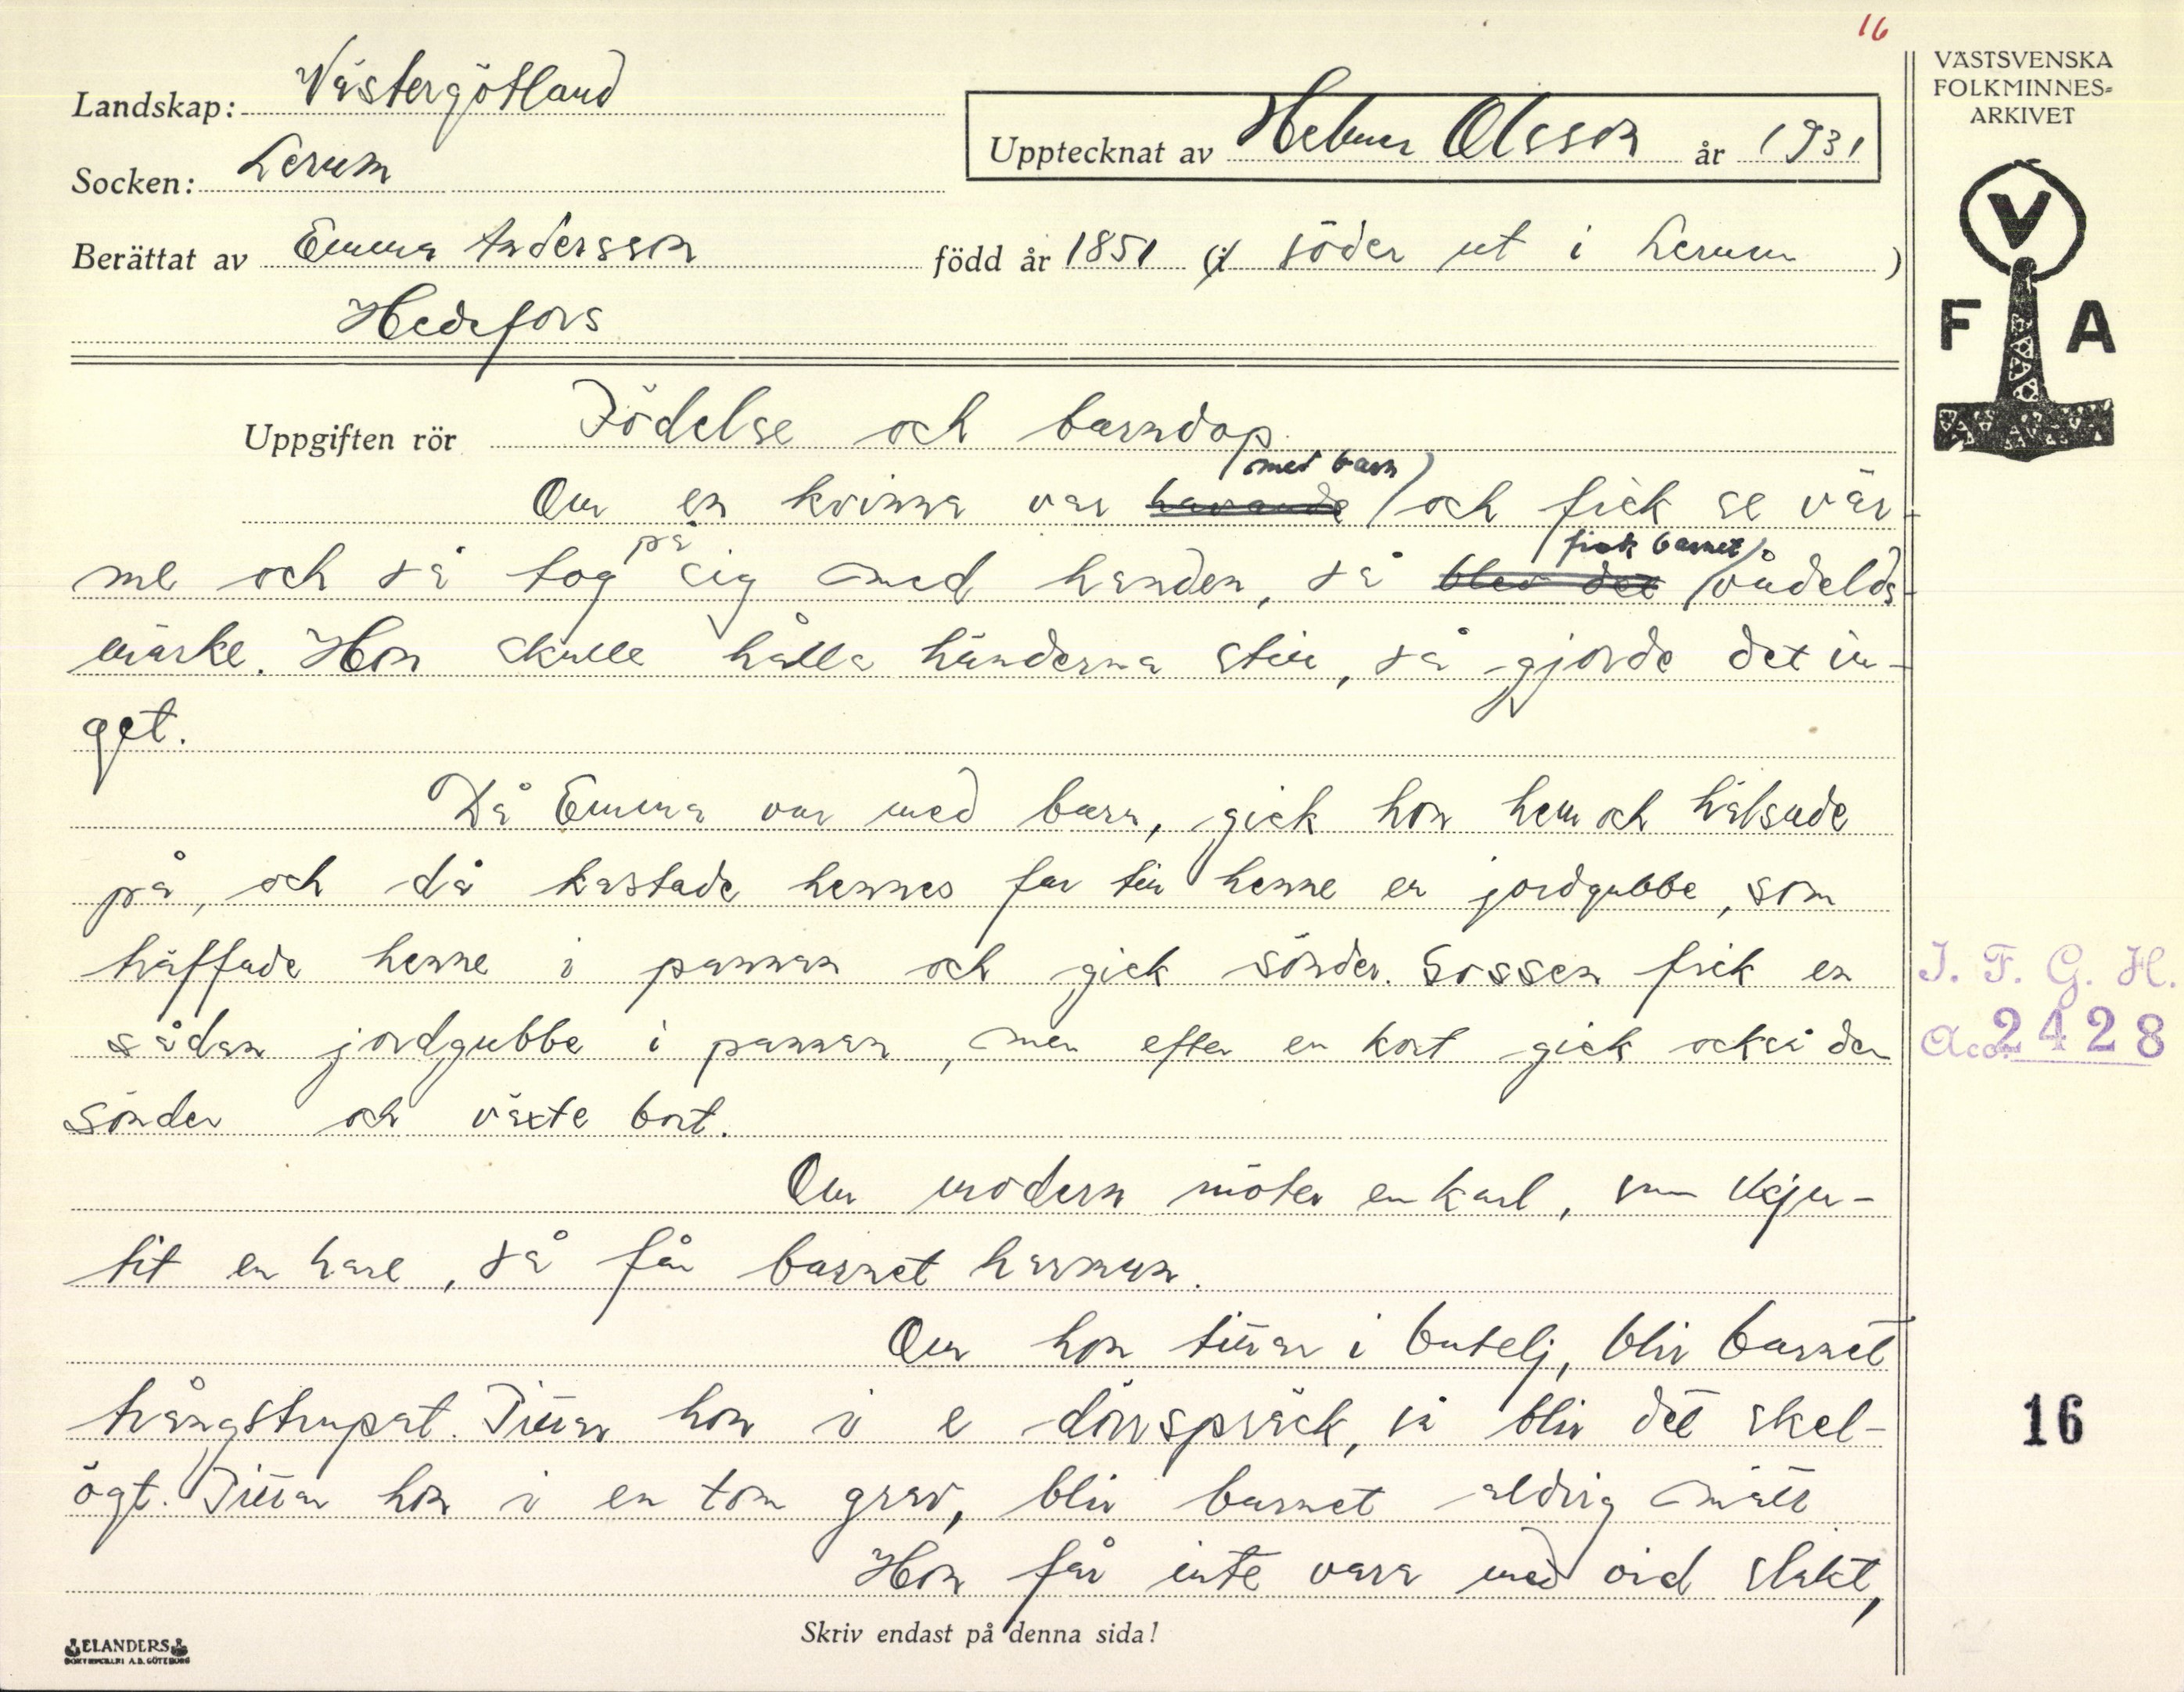 16
Landskap: Västergötland
Socken: Lerum
Upptecknat av Helmer Olsson år 1931
Berättat av Emma Andersson född år 1851 (i söder ut i Lerum)
Hedefors
VÄSTSVENSKA
FOLKMINNES=
ARKIVET
V
F A
Uppgiften rör Födelse och barndop
Om en kvinna var havande (med barn) och fick se vär-
me och så tog på sig med handen, så blev det (fick barnet) vådelds-
märke. Hon skulle hålla händerna still, så gjorde det in-
get.
Då Emma var med barn, gick hon hem och hälsade
på, och då kastade hennes far till henne en jordgubbe, som
träffade henne i pannan och gick sönder. Gossen fick en
sådan jordgubbe i pannan, men efter en kort gick också den
sönder och växte bort.
Om modern möter en karl, som skju-
tit en hare, så får barnet harmun.
Om hon tittar i butelj, blir barnet
trångstrupat. Tittar hon i e dörrspräck, så blir det skel-
ögt. Tittar hon i en tom grav, blir barnet aldrig mätt
Hon får inte vara med vid slakt,
I. F. G. H.
Acc. 2428
16
Skriv endast på denna sida!
ELANDERS
BOKTRYCKERI A.B. GÖTEBORG